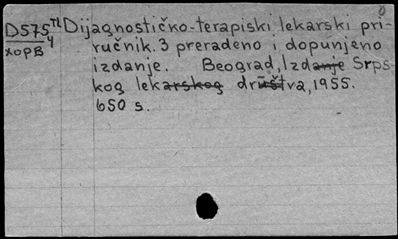 D575 TL Dijagnostičko-terapiski lekarski pri-
XOPB 4 ručnik. 3 preradeno i dopunjeno
izdanje. Beograd, Izdanje Srps
kog lekarskog društva, 1955.
650 s.